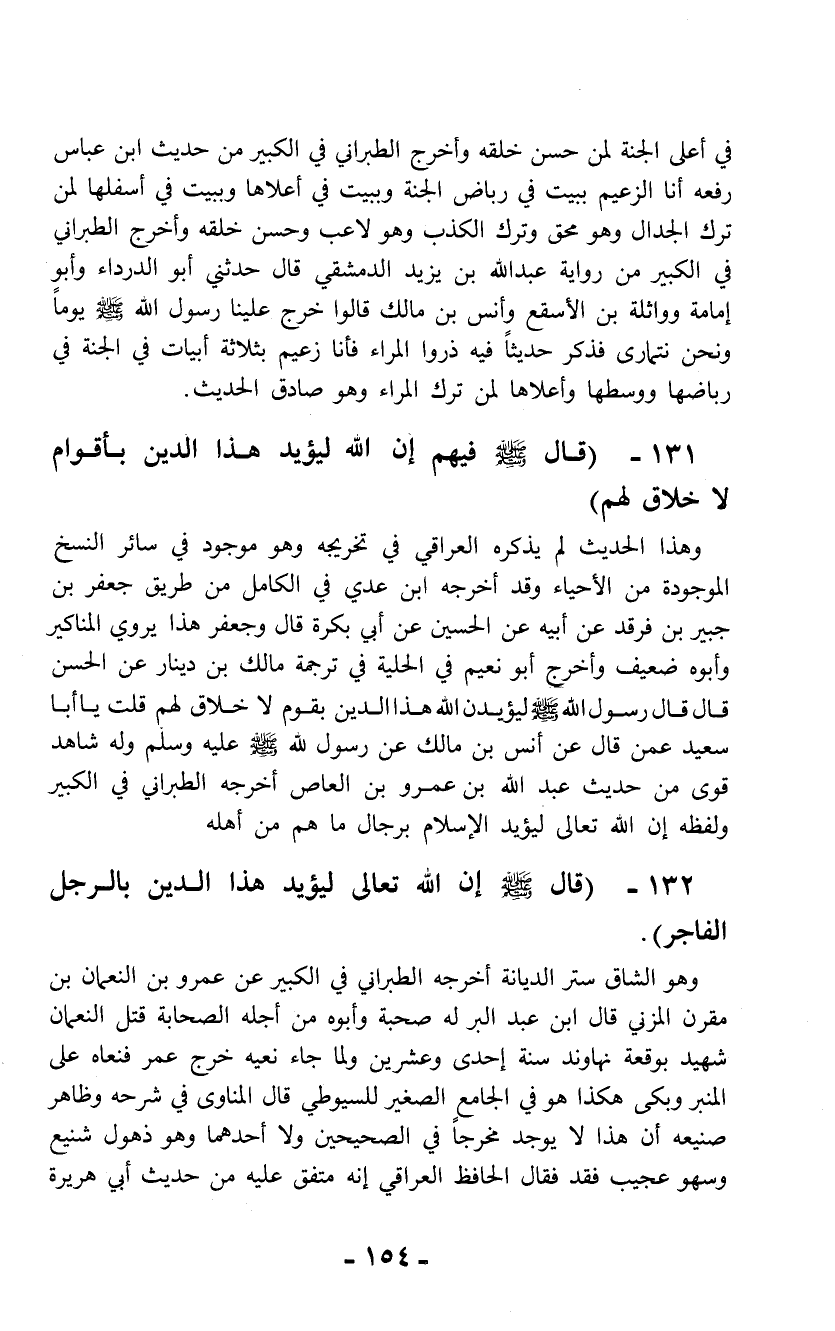 في أعلى الجنة لمن حسن خلقه وأخرج الطبراني في الكبير من حديث ابن عباس
رفعه أنا الزعيم ببيت في رباض الجنة وببيت في أعلاها وببيت في أسفلها لمن
ترك الجدال وهو محق وترك الكذب وهو لاعب وحسن خلقه وأخرج الطبراني
في الكبير من رواية عبدالله بن يزيد الدمشقي قال حدثني أبو الدرداء وأبو
إمامة وواثلة بن الأسقع وأنس بن مالك قالوا خرج علينا رسول الله ﷺ يوماً
ونحن نتمارى فذكر حديثاً فيه ذروا المراء فأنا زعيم بثلاثة أبيات في الجنة في
رباضها ووسطها وأعلاها لمن ترك المراء وهو صادق الحديث.
١٣١ - (قال ﷺ فيهم إن الله ليؤيد هذا الدين بأقوام
لا خلاق لهم)
وهذا الحديث لم يذكره العراقي في تخريجه وهو موجود في سائر النسخ
الموجودة من الأحياء وقد أخرجه ابن عدي في الكامل من طريق جعفر بن
جبير بن فرقد عن أبيه عن الحسين عن أبي بكرة قال وجعفر هذا يروي المناكير
وأبوه ضعيف وأخرج أبو نعيم في الحلية في ترجمة مالك بن دينار عن الحسن
قال قال رسول الله ﷺ ليؤيدن الله هذا الدين بقوم لا خلاق لهم قلت يا أبا
سعيد عمن قال عن أنس بن مالك عن رسول لله ﷺ عليه وسلم وله شاهد
قوى من حديث عبد الله بن عمرو بن العاص أخرجه الطبراني في الكبير
ولفظه إن الله تعالى ليؤيد الإسلام برجال ما هم من أهله
١٣٢ - (قال ﷺ إن الله تعالى ليؤيد هذا الدين بالرجل
الفاجر).
وهو الشاق ستر الديانة أخرجه الطبراني في الكبير عن عمرو بن النعمان بن
مقرن المزني قال ابن عبد البر له صحبة وأبوه من أجله الصحابة قتل النعمان
شهيد بوقعة نهاوند سنة إحدى وعشرين ولما جاء نعيه خرج عمر فنعاه على
المنبر وبكى هكذا هو في الجامع الصغير للسيوطي قال المناوى في شرحه وظاهر
صنيعه أن هذا لا يوجد مخرجاً في الصحيحين ولا أحدهما وهو ذهول شنيع
وسهو عجيب فقد فقال الحافظ العراقي إنه متفق عليه من حديث أبي هريرة
- ١٥٤ -